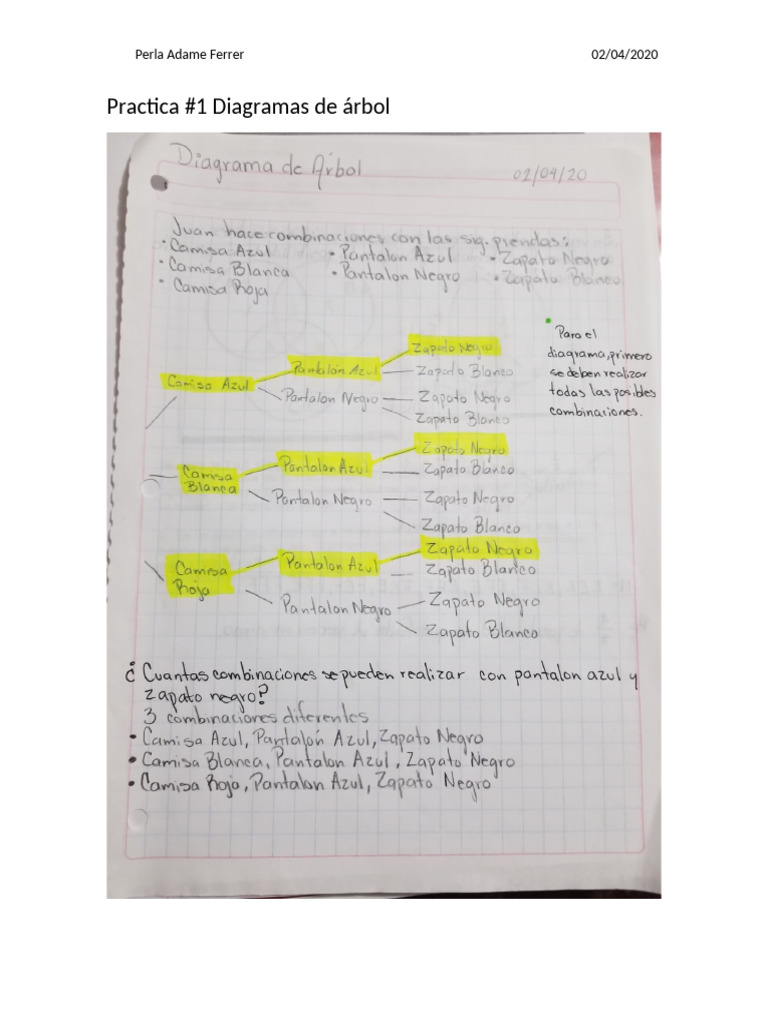 Perla Adame Ferrer 02/04/2020
Practica #1 Diagramas de árbol
Diagrama de Árbol
02/04/20
Juan hace combinaciones con las sig. prendas:
• Camisa Azul • Pantalon Azul • Zapato Negro
• Camisa Blanca • Pantalon Negro • Zapato Blanco
• Camisa Roja
• Para el
diagrama, primero
se deben realizar
todas las posibles
combinaciones.
Zapato Negro
Camisa Azul Pantalón Azul Zapato Blanco
Pantalon Negro Zapato Negro
Zapato Blanco
Zapato Negro
Camisa Pantalon Azul Zapato Blanco
Blanca Pantalon Negro Zapato Negro
Zapato Blanco
Zapato Negro
Camisa Pantalon Azul Zapato Blanco
Roja Pantalon Negro Zapato Negro
Zapato Blanco
¿Cuantas combinaciones se pueden realizar con pantalon azul y
zapato negro?
3 combinaciones diferentes
• Camisa Azul, Pantalón Azul, Zapato Negro
• Camisa Blanca, Pantalon Azul, Zapato Negro
• Camisa Roja, Pantalon Azul, Zapato Negro